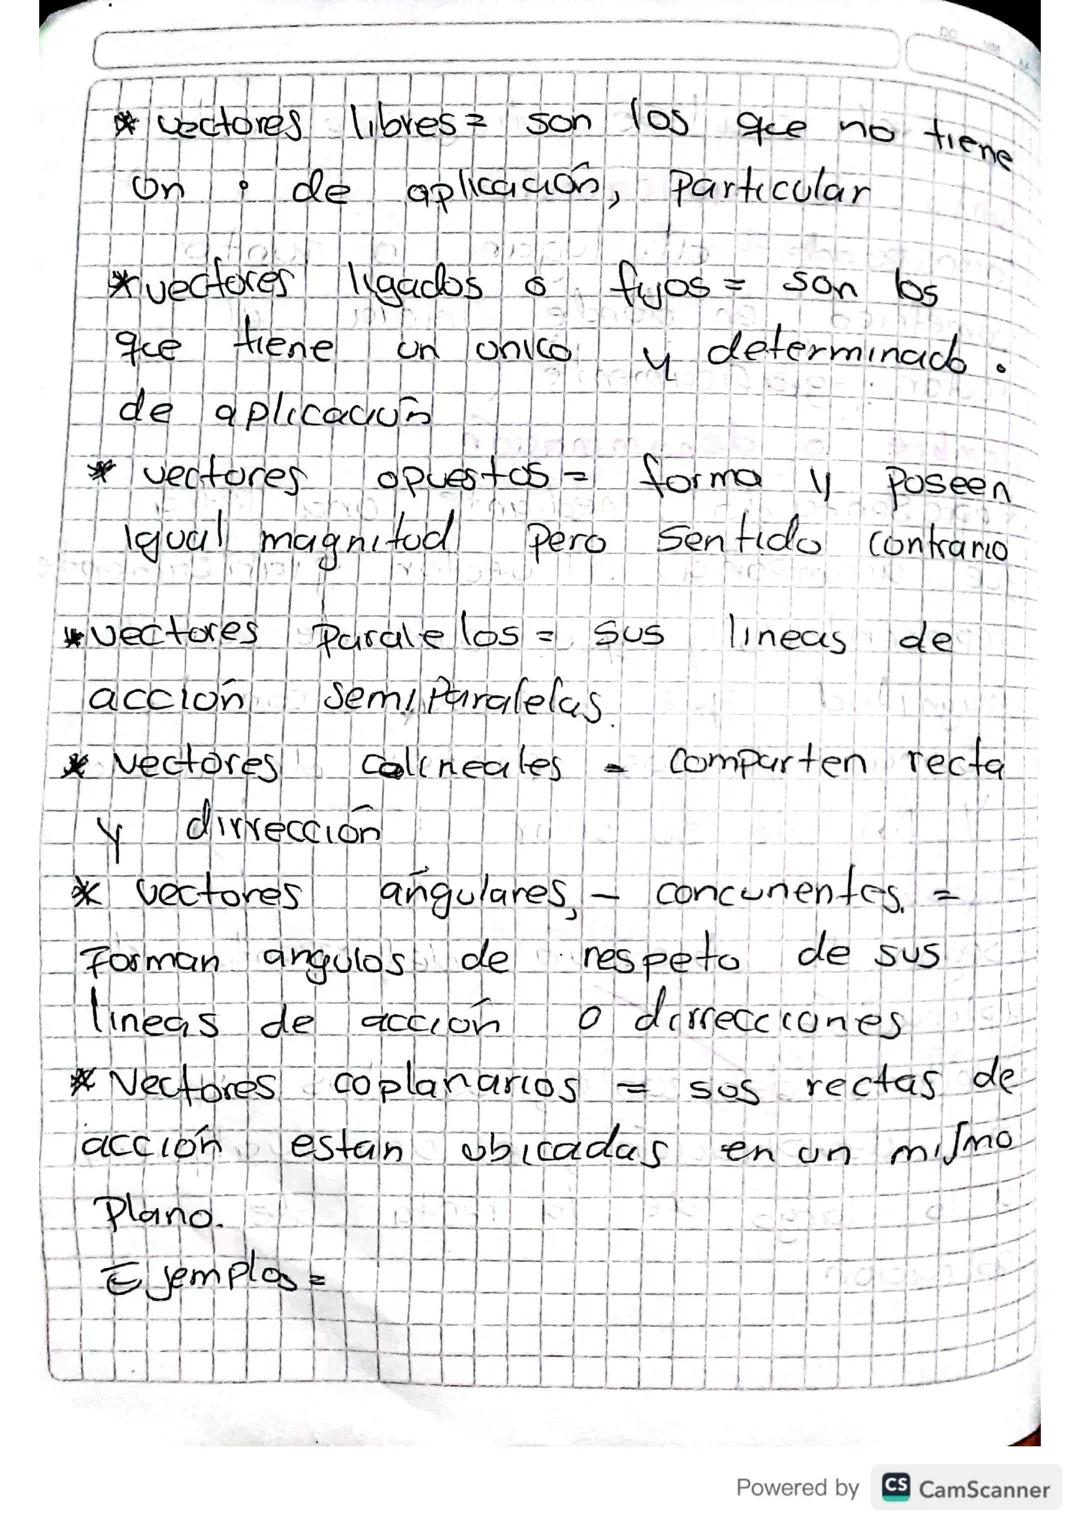 * vectores libres = son los que no tiene
un • de aplicación, particular
* vectores ligados o fijos = son los
que tiene un unico y determinado •
de aplicación
* vectores opuestos = forma y poseen
igual magnitud pero sentido contrario
* vectores paralelos = sus lineas de
acción semi paralelas.
* vectores colineales - comparten recta
y dirrección
* vectores angulares, - concurrentes. =
Forman angulos de respeto de sus
lineas de acción o dirrecciones
* Vectores coplanarios = sus rectas de
acción estan ubicadas en un mismo
Plano.
Ejemplos =
Powered by CS CamScanner